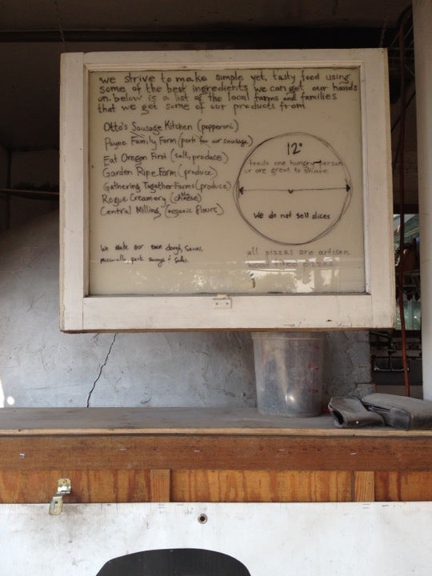 we strive to make simple yet, tasty food using
some of the best ingredients we can get our hands
on. below is a list of the local farms and families
that we got some of our products from
Otto's Sausage Kitchen (pepperoni)
Payne Family Farm (pork for our sausage)
Eat Oregon First (salt, produce)
Garden Ripe Farm (produce)
Gathering Together Farms (produce)
Rogue Creamery (cheese)
Central Milling (organic flour)
12"
feeds one hungry person
or are great to share
we do not sell slices
We make our own dough, sauce,
mozzarella, pork sausage &
all pizzas are artisan